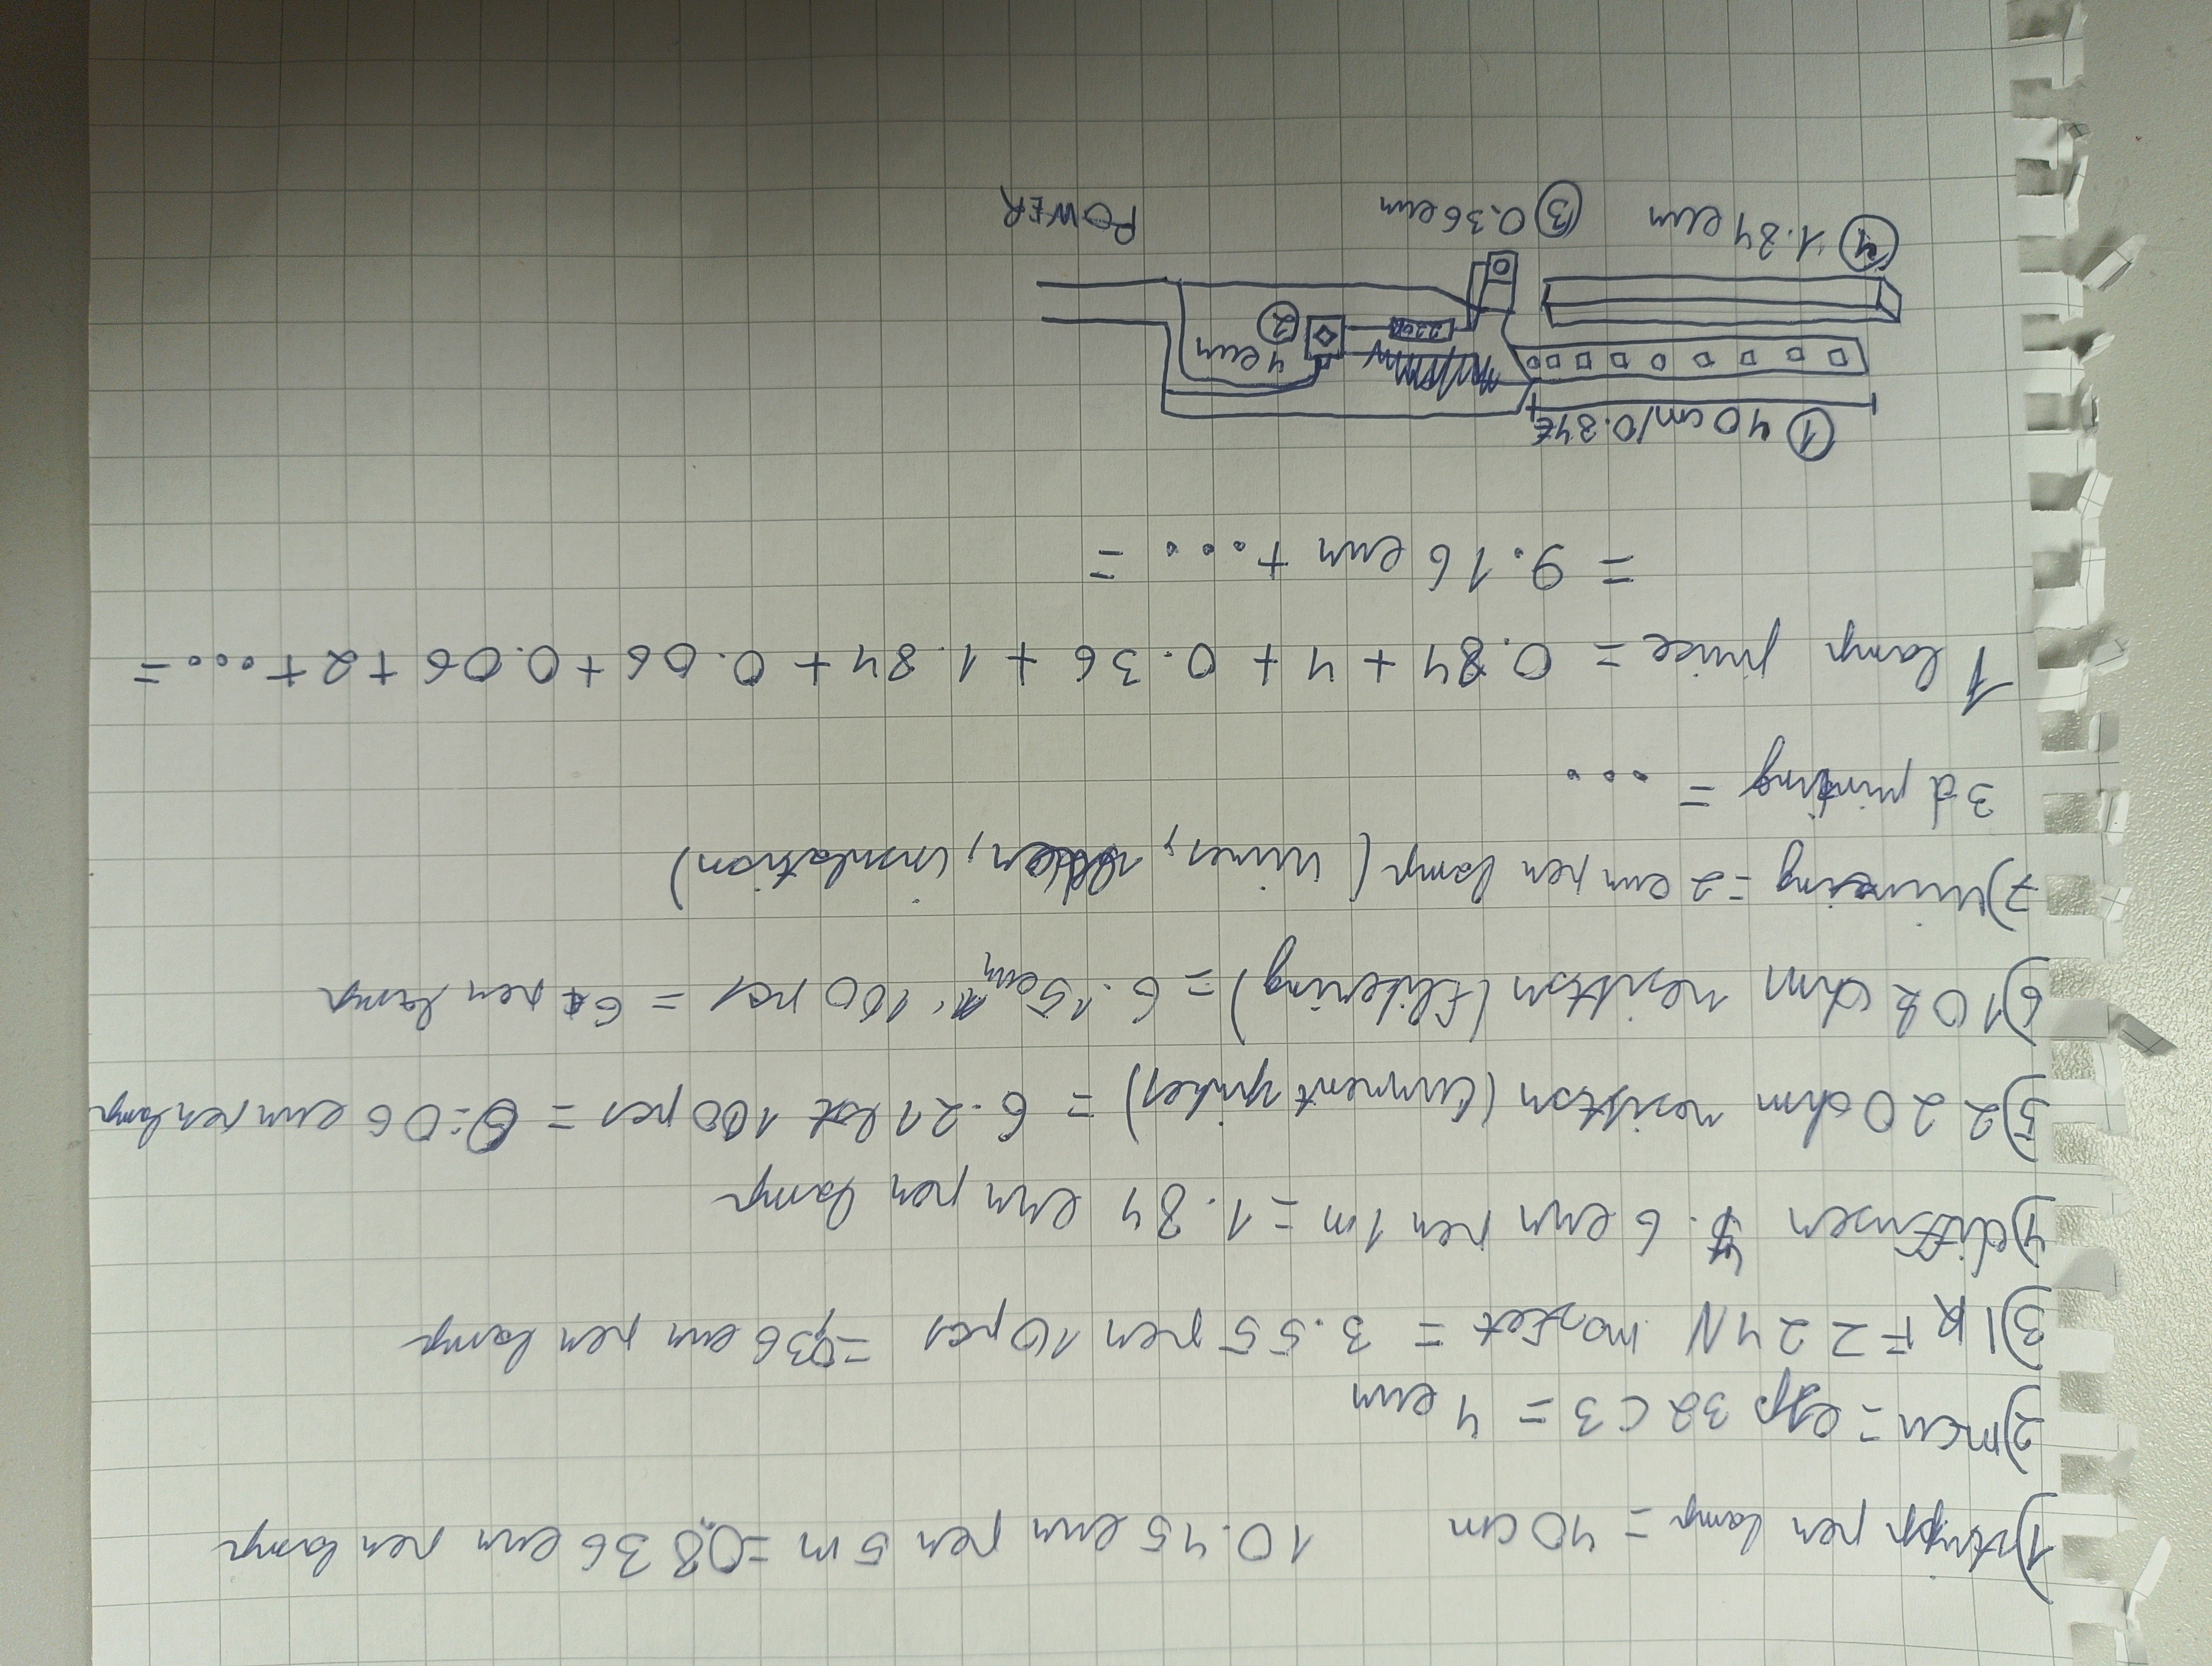 1) stripp per lamp = 40 cm 10.45 eur per 5m = 0.836 eur per lamp
2) mcu = esp 32 C3 = 4 eur
3) IRFZ24N mosfet = 3.55 per 10 pcs = 0,36 eur per lamp
4) diffuser 4.6 eur per 1m = 1.84 eur per lamp
5) 220 ohm resistor (current spikes) = 6.21 100 pcs = 0.06 eur per lamp
6) 10k ohm resistor (flikering) = 6.15 eur 100 pcs = 6 per lamp
7) wireing = 2 eur per lamp (wires, insulation)
3d printing = ...
1 lamp price = 0.84 + 4 + 0.36 + 1.84 + 0.06 + 0.06 + 2 + .... =
= 9.16 eur + .... =
① 40cm/0.84€
4 eur ②
220R
④ 1.84 eur ③ 0.36 eur POWER